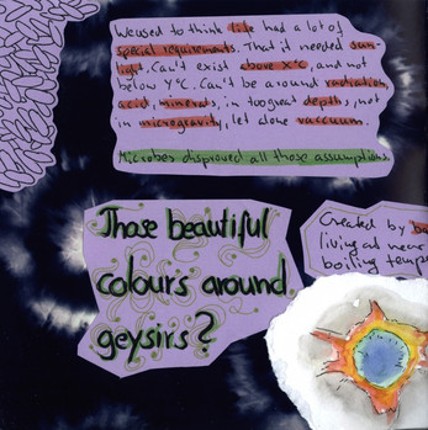 We used to think life had a lot of
special requirements. That it needed sun-
light, Can't exist above X°C, and not
below Y°C. Can't be around radiation,
acid, minerals, in too great depths, not
in microgravity, let alone vaccuum.
Microbes disproved all those assumptions.
Those beautiful
colours around
geysirs?
Created by
living at near
boiling